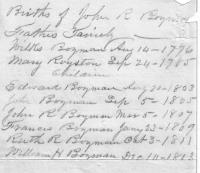 Births of John R Bozman
Fathers Family
Wilks Bozman Aug 14-1776
Mary Royston Sep 24-1785
Children
Edward Bozman Aug 20-1803
John Bozman Sep 5-1805
John R Bozman Mar 5-1807
Francis Bozman Jany 23-1809
Ruth R Bozman Oct 3-1811
William H Bozman Dec 14-1813